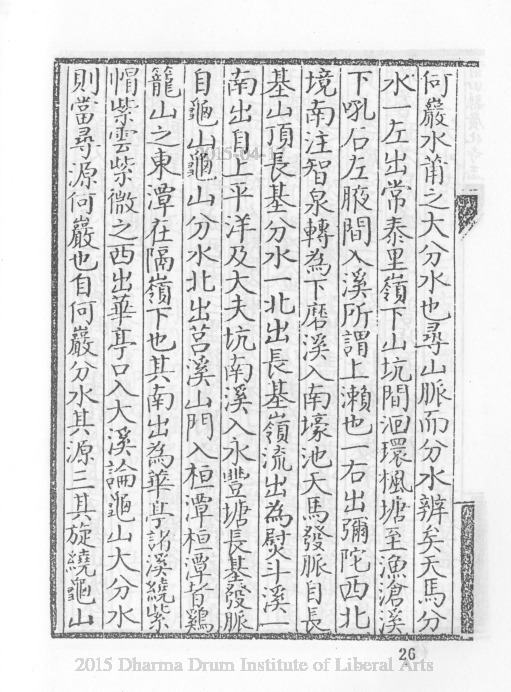 何巖水莆之大分水也尋山脈而分水辨矣天馬分
水一左出常泰里嶺下山坑間洄環楓塘至漁滄溪
下吼石左腋間入溪所謂上瀨也一右出彌陀西北
境南注智泉轉為下磨溪入南壕池天馬發脈自長
基山頂長基分水一北出長基嶺流出為熨斗溪一
南出自上平洋及大夫坑南溪入永豐塘長基發脈
自龜山龜山分水北出莒溪山門入桓潭桓潭者鷄
籠山之東潭在隔嶺下也其南出為華亭諸溪繞紫
帽紫雲紫微之西出華亭口入大溪論龜山大分水
則當尋源何巖也自何巖分水其源三其旋繞龜山
26
2015 Dharma Drum Institute of Liberal Arts